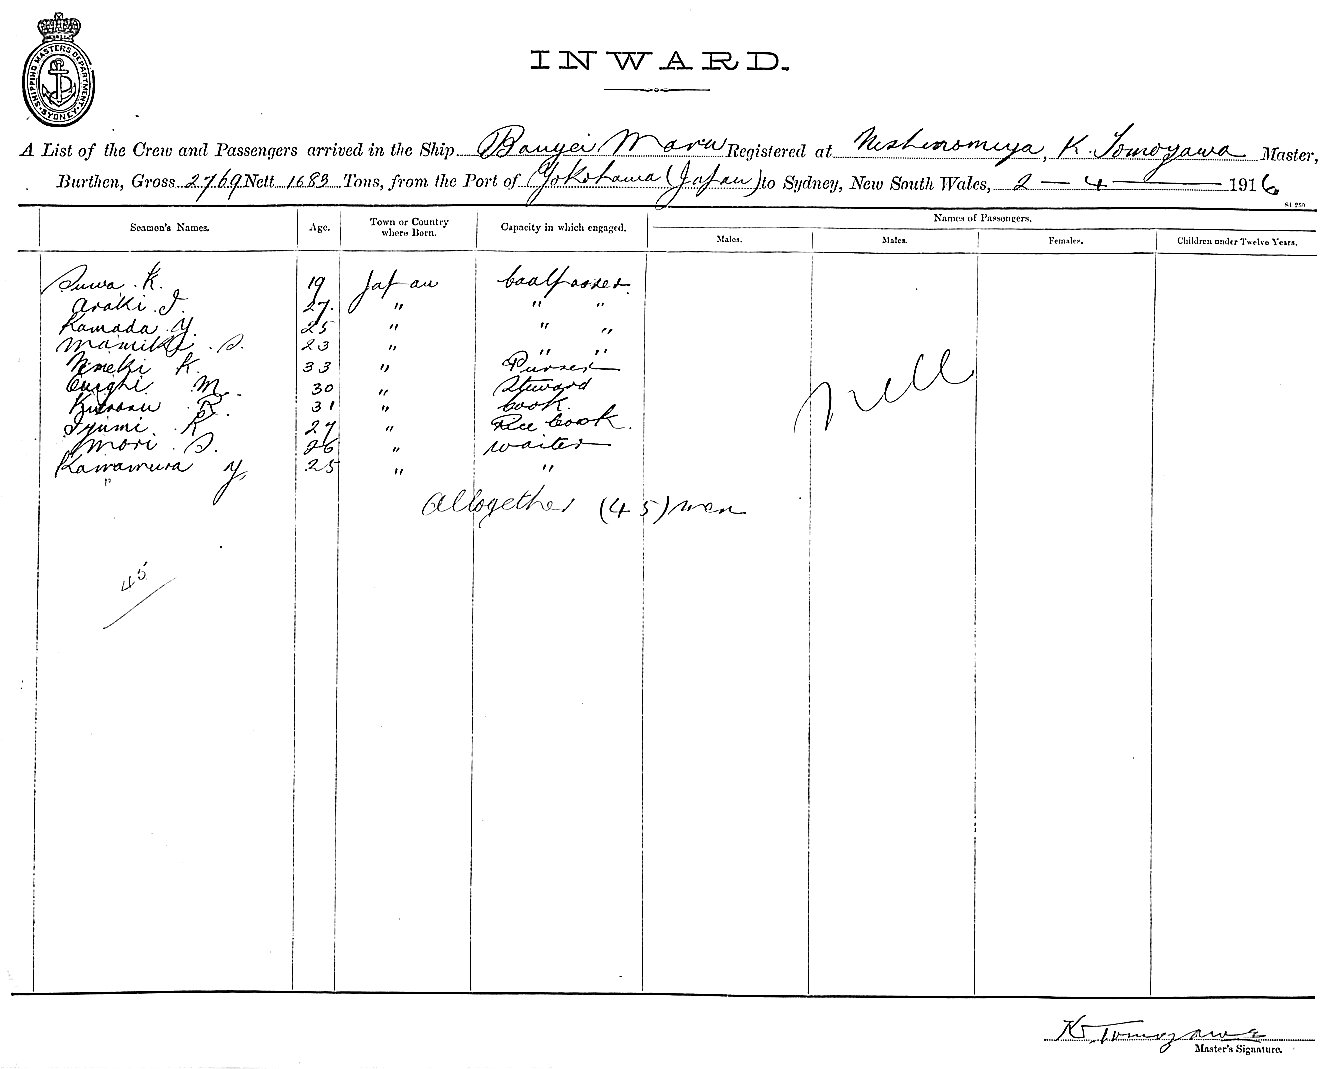 SHIPPING MASTERS DEPARTMENT SYDNEY
INWARD.
A List of the Crew and Passengers arrived in the Ship Banyei Maru Registered at Nishinomiya, K. Tomoyawa Master,
Burthen, Gross 2769 Nett 1683 Tons, from the Port of Yokohama (Japan) to Sydney, New South Wales, 2 — 4 — 1916
Seamen's Names. Age. Town or Country where Born. Capacity in which engaged. Names of Passengers.
Males. Males. Females. Children under Twelve Years.
Suwa K. 19 Japan Coalpasser
Araki I. 27. " " "
Kamada Y. 25 " " "
S. 23 " " "
K. 33 " Purser
M. 30 " Steward
31 " Cook
Iyumi. K 27 " Cook.
Mori S. 26 " Waiter
Kawamura Y. 25 " "
nell
Altogether (45) men
45
K Tomoyawa
Master's Signature.